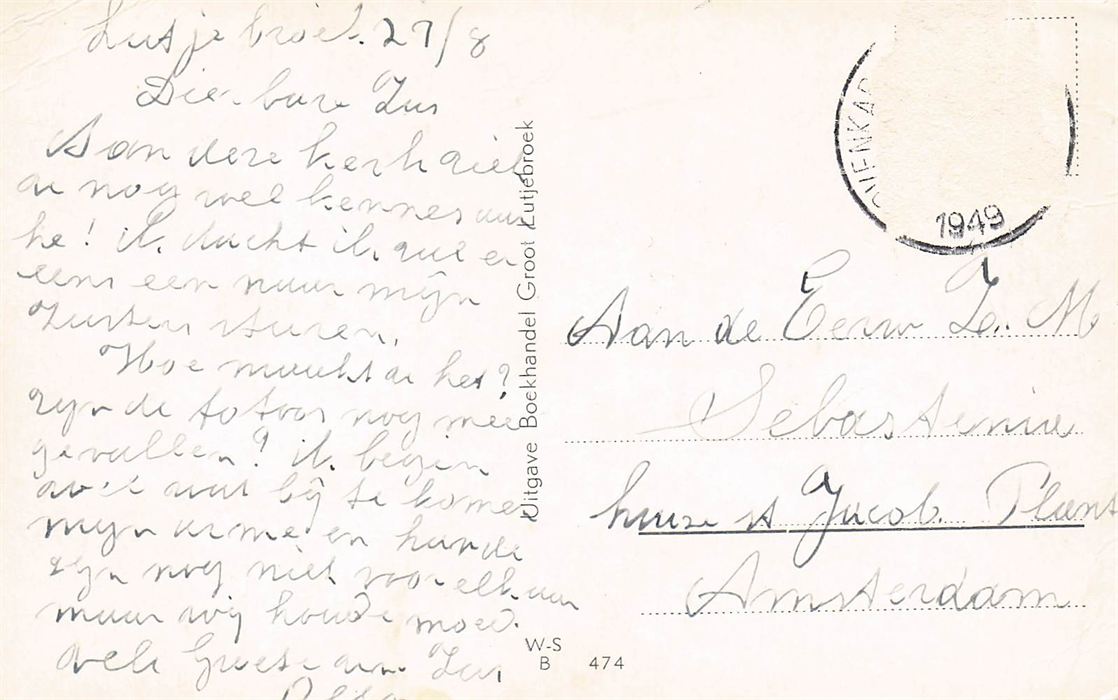 Lutjebroek. 27/8
Dierbare Zus
Aan deze kerk
nog wel kennes aan
he! ik dacht ik
eens een naar mijn
Zusters sturen.
Hoe maakt de het?
zijn de fotoos nog mee
gevallen? ik begin
wat bij te komen
mijn arme en hande
zijn nog niet voor elkaar
maar wij houde moed.
Groete aan Zus
Uitgave Boekhandel Groot Lutjebroek
W-S
B 474
1949
Aan de Eerw Z. M
Sebastenia
huize st Jacob. Plant
Amsterdam